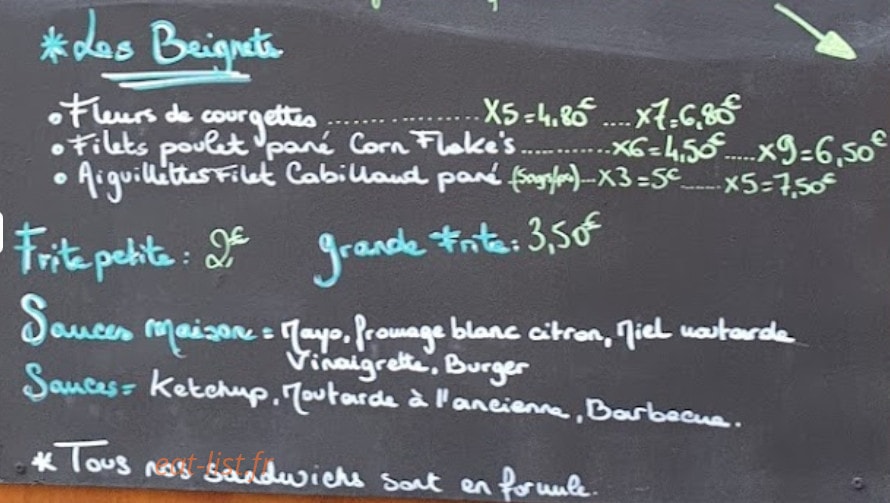 * Les Beignets
• Fleurs de courgettes ................ x5=4,80€ .... x7=6,80€
• Filets poulet pané Corn Flake's ........... x6=4,50€ ..... x9=6,50€
• Aiguillettes Filet Cabillaud pané (50grs/pce)... x3=5€ ...... x5=7,50€
Frite petite : 2,€ grande frite : 3,50€
Sauces maison = Mayo, fromage blanc citron, Miel moutarde
Vinaigrette, Burger
Sauces = Ketchup, Moutarde à l'ancienne, Barbecue.
* Tous nos sandwichs sont en formule.
eat-list.fr